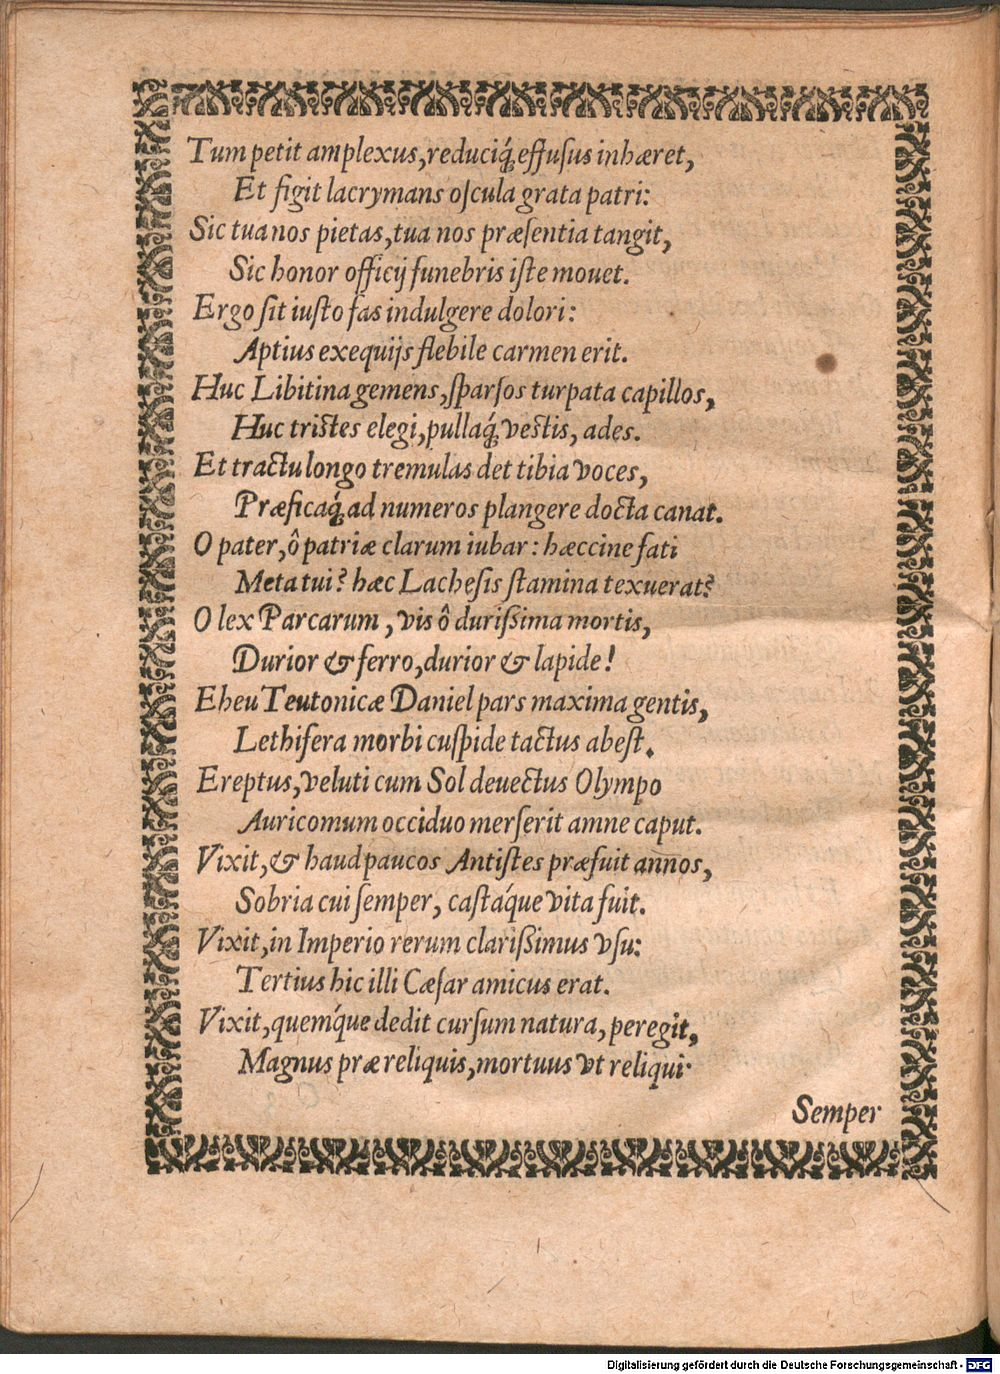 Tum petit amplexus, reduciq́; effuſus inhæret,
Et figit lacrymans oſcula grata patri:
Sic tua nos pietas, tua nos præſentia tangit,
Sic honor officij funebris iſte mouet.
Ergo ſit iuſto fas indulgere dolori:
Aptius exequijs flebile carmen erit.
Huc Libitina gemens, ſparſos turpata capillos,
Huc triſtes elegi, pullaq́; veſtis, ades.
Et tractu longo tremulas det tibia voces,
Præficaq́; ad numeros plangere docta canat.
O pater, ô patriæ clarum iubar: hæccine fati
Meta tui? hæc Lacheſis ſtamina texuerat?
O lex Parcarum, vis ô duriſsima mortis,
Durior & ferro, durior & lapide!
Eheu Teutonicæ Daniel pars maxima gentis,
Lethifera morbi cuſpide tactus abeſt.
Ereptus, veluti cum Sol deuectus Olympo
Auricomum occiduo merſerit amne caput.
Vixit, & haud paucos Antiſtes præfuit annos,
Sobria cui ſemper, caſtáque vita fuit.
Vixit, in Imperio rerum clariſsimus vſu:
Tertius hic illi Cæſar amicus erat.
Vixit, quemq́ue dedit curſum natura, peregit,
Magnus præ reliquis, mortuus vt reliqui·
Semper
Digitalisierung gefördert durch die Deutsche Forschungsgemeinschaft - DFG